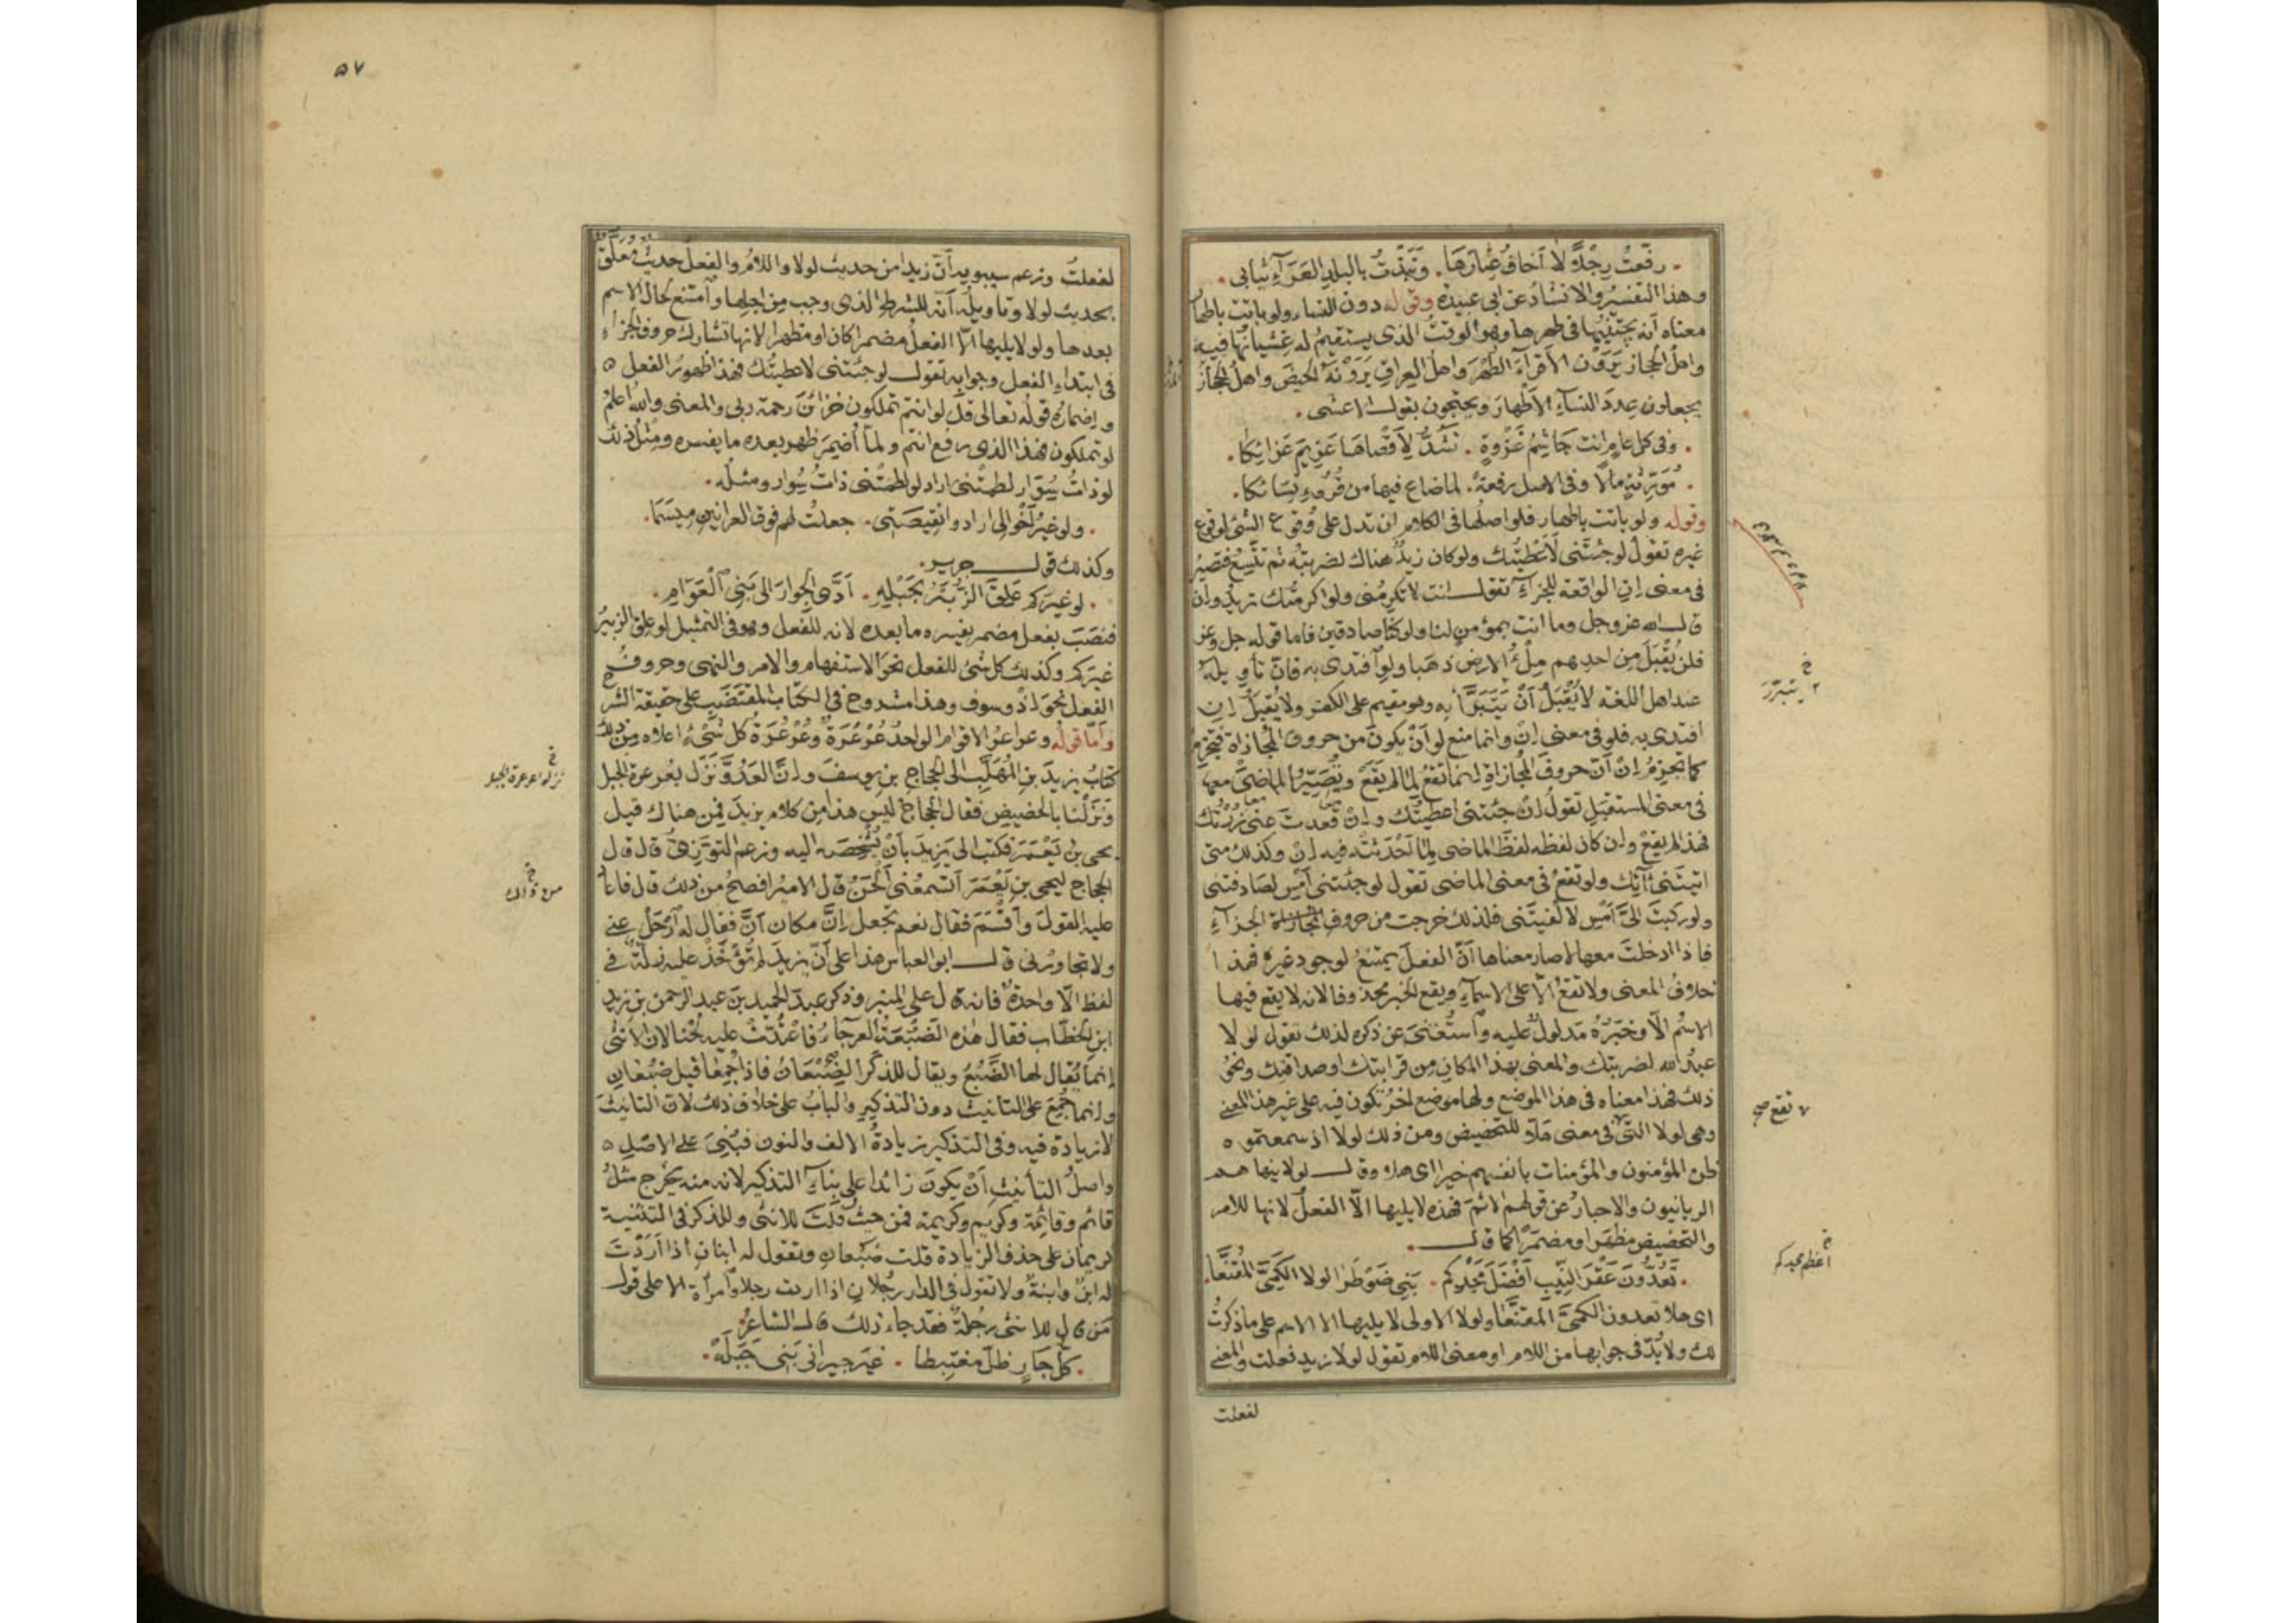 رفعتُ رِجْلًا لا أخافُ عِثارَها . ونَبَذتُ بالبلدِ العَرَآءِ ثيابى .
وهذا التفسيرُ والانشادُ عن ابى عبيدة وقوله دون النساء ولو باتت باطهار
معناه أنه يجتنبُها فى طهرها وهو الوقتُ الذى يستقيمُ له غِشيانُها فيه
واهلُ الحجاز يَرَوْن الأقرآءَ الطُهْرَ واهلُ العراق يَرَوْنَهُ الحيضَ واهلُ الحجاز
يجعلون عِددَ النسآءِ الأطهارَ ويحتجون بقول الاعشى .
. وفى كل عامٍ انت جَاشِمُ غَزْوةٍ . تَشُدُّ لِأَقْصَاهَا عَزِيمَ عَزَائِكَا .
. مُوَرِّثةٍ مالًا وفى الاصل رفعةً . لما ضاع فيها من قُرُوءِ نِسَائكا .
وقوله ولو باتت باطهار فلو اصلُها فى الكلام ان تدل على وُقوع الشئ لوقوع
غيره تقولُ لو جئتَنى لَأَعْطَيْتُك ولو كان زيدٌ هناك لضربتُه ثم تتّسِعُ فتصيرُ
فى معنى إِنِ الواقعة للجزآء تقول انت لا تكرِمُنى ولو اكرمتُك تريد وإن
قال الله عز وجل وما انت بمؤمنٍ لنا ولو كنّا صادقين فاما قوله جل وعز
فلن يُقْبَلَ من احدهم مِلْءُ الارض ذهبا ولو افتدى به فان تأويله
عند اهل اللغة لا يُقْبَلُ أَنْ يَتَبَرَّأ به وهو مقيم على الكفر ولا يُقبَلُ إن
افتدى به فلو فى معنى إِنْ وانما منع لو أَنْ يكونَ من حروف المُجازاة فتجزمَ
كما تجزِمُ إِنْ أنّ حروفَ المجازاة إنما تقعُ لما لم يَقَعْ ويُصَيَّرُ الماضى معها
فى معنى المستقبل تقولُ إنْ جئتنى اعطيتُك وإنْ قعدتَ عنى زرتُك
فهذا لم يقعْ وإن كان لفظه لفظَ الماضى لِما أَحْدَثَتْه فيه إِنْ وكذلك متى
اتيتَنى آتِك ولو تقعُ فى معنى الماضى تقول لو جئتَنى أمسِ لصادفتنى
ولو ركبتَ الىَّ أمسِ لالفيتَنى فلذلك خرجت من حروفِ الجزآء
فاذا ادخلتَ معها لا صار معناها أنّ الفعلَ يمتنعُ لوجود غيره فهذا
خلافُ المعنى ولا تقع الّا على الاسمآء ويقع الخبر محذوفا لانه لا يقع فيها
الاسمُ الّا وخَبَرُهُ مَدلولٌ عليه وٱستُغنىَ عن ذكره لذلك تقول لولا
عبدُ الله لضربتك والمعنى بهذا المكان من قرابتك او صداقتك ونحوُ
ذلك فهذا معناه فى هذا الموضع ولها موضع آخرُ تكون فيه على غير هذا المعنى
وهى لولا التى فى معنى هَلّا للتحضيض ومن ذلك لولا اذ سمعتموه
ظن المؤمنون والمؤمنات بأنفسهم خيرا اى هلا وقال لولا ينهاهم
الربانيون والاحبارُ عن قولهم الاثمَ فهذه لا يليها الّا الفعلُ لانها للامر
والتحضيض مظهَرا او مضمَرًا كما قال .
. تَعُدُّونَ عَقْرَ النِّيبِ أَفْضَلَ مَجْدِكُم . بَنِى ضَوْطَرَا لولا الكَمِىَّ المُقَنَّعَا .
اى هلا تعدون الكمىَّ المقنَّعا ولولا الاولى لا يليها الا الاسم على ما ذكرتُ
لك ولا بُدّ فى جوابها من اللام او معنى اللام تقول لولا زيد فعلت والمعنى
لفعلت
ينبرّرَ
تقع صح
اعظم مجدكم
٥٧
لفعلتُ وزعم سيبويه أنّ زيدا من حديث لولا واللامُ والفعلُ حديثٌ مُعَلَّقٌ
بحديث لولا وتاويلُه أنه للشرط الذى وجب من اجلها وٱمتنع لحال الاسم
بعدها ولو لا يليها الّا الفعلُ مضمرا كان او مظهرا لانها تشارك حروف الجزآء
فى ابتدآءِ الفعل وجوابِه تقول لو جئتنى لاعطيتُك فهذا ظهورُ الفعل ه
وإضمارُه قولُه تعالى قل لو انتم تملكون خزائنَ رحمة ربى والمعنى واللهُ اعلمُ
لو تملكون فهذا الذى رفع انتم ولمّا أُضمِرَ ظهر بعده ما يفسره ومِثْلُ ذلك
لو ذاتُ سِوَارٍ لطمتْنى اراد لو لطمتْنى ذاتُ سِوارٍ ومثلُه .
. ولو غيرُ أخوالى ارادوا نقِيصَتِى . جعلتُ لهم فوق العرانينِ مِيسَمَا .
وكذلك قول جرير .
. لو غيرَكم عَلِقَ الزُّبَيْرُ بِحَبْلِهِ . أَدَّى الجِوارَ الى بَنِى ٱلْعَوَّامِ .
فنصَبَ بفعل مضمر يفسره ما بعده لانه للفعل وهو فى التمثيل لو علِق الزبيرُ
غيرَكم وكذلك كل شئ للفعل نحوَ الاستفهام والامر والنهى وحروفُ
الفعل نحوَ اذ وسوف وهذا مشروح فى الكتاب المُقتَضَبِ على حقيقة الشرح
وأَمّا قولُه وعراعرُ الاقوامِ الواحدُ عُرْعُرَةٌ وعُرْعُرَةُ كل شئٍ اعلاه من ذلك
كتابُ يزيدَ بنِ المُهَلَّبِ الى الحجاجِ بنِ يوسفَ وانّ العدُوَّ نَزَل بعُرعرة الجبل
ونَزَلْنا بالحضيضِ فقال الحجاجُ ليس هذا من كلام يزيدَ فمن هناك قيل
يحيى بن يَعْمَرَ فكتب الى يزيدَ بأن يُشْخِصَه اليه وزعم التوَّزِىُّ قال قال
الحجاج ليحيى بنِ يَعْمَرَ أتسمعُنى أَلْحَنُ قال الاميرُ افصحُ من ذلك قال فاعاد
عليه القولَ وأَقْسَمَ فقال نعم تجعل إِنَّ مكان أَنَّ فقال له ٱرحَلْ عنى
ولا تجاورْنى قال ابو العباس هذا على أنّ يزيدَ لم تُؤْخَذْ عليه زلّةٌ فى
لفظ الّا واحدةٌ فانه قال على المنبر وذكر عبدَ الحميد بنَ عبد الرحمن بن زيد
ابن الخطّاب فقال هذه الضَّبُعَةُ العرجآءُ فاعتُدّتْ عليه لحنا لان الأنثى
إنما يُقال لها الضَّبُعُ ويقال للذكر الضِّبْعَانُ فاذا جُمِعَا قيل ضَبُعَانِ
وإنما جُمِعَ على التانيث دون التذكير والبابُ على خلاف ذلك لانّ التانيثَ
لا زيادةَ فيه وفى التذكير زيادةُ الالف والنون فبُنِىَ على الاصْلِ ه
واصلُ التأنيثِ أَنْ يكونَ زائدا على بِنآءِ التذكير لانه منه يخرج مثلُ
قائم وقائمة وكريم وكريمة فمن حيثُ قُلتَ للانثى وللذكر فى التثنية
كريمان على حذف الزيادة قلت ضَبُعان وتقول له ابنانِ اذا أَرَدْتَ
له ابنٌ وابنةٌ ولا تقول فى الدار رجُلانِ اذا اردت رجلا وٱمرأةً الا على قول
مَن قال للانثى رجُلةٌ فقد جاء ذلك قال الشاعرُ
. كلُّ جَارٍ ظلّ مغتبِطا . غيرَ جيرانى بَنِى جَبَلَهْ .
نزلوا عرعرة الجبل
من ذاك